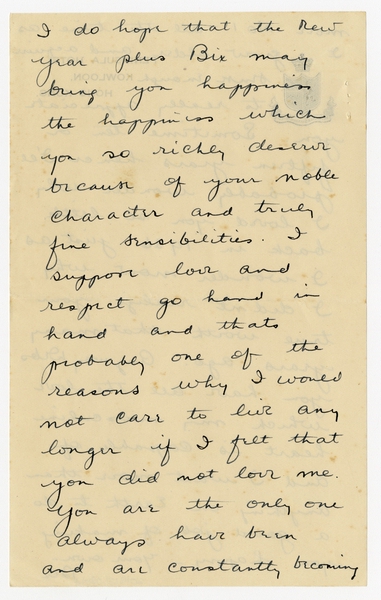 I do hope that the new
year plus Bix may
bring you happiness
the happiness which
you so richly deserve
because of your noble
character and truly
fine sensibilities. I
suppose love and
respect go hand in
hand and thats
probably one of the
reasons why I would
not care to live any
longer if I felt that
you did not love me.
You are the only one
always have been
and are constantly becoming